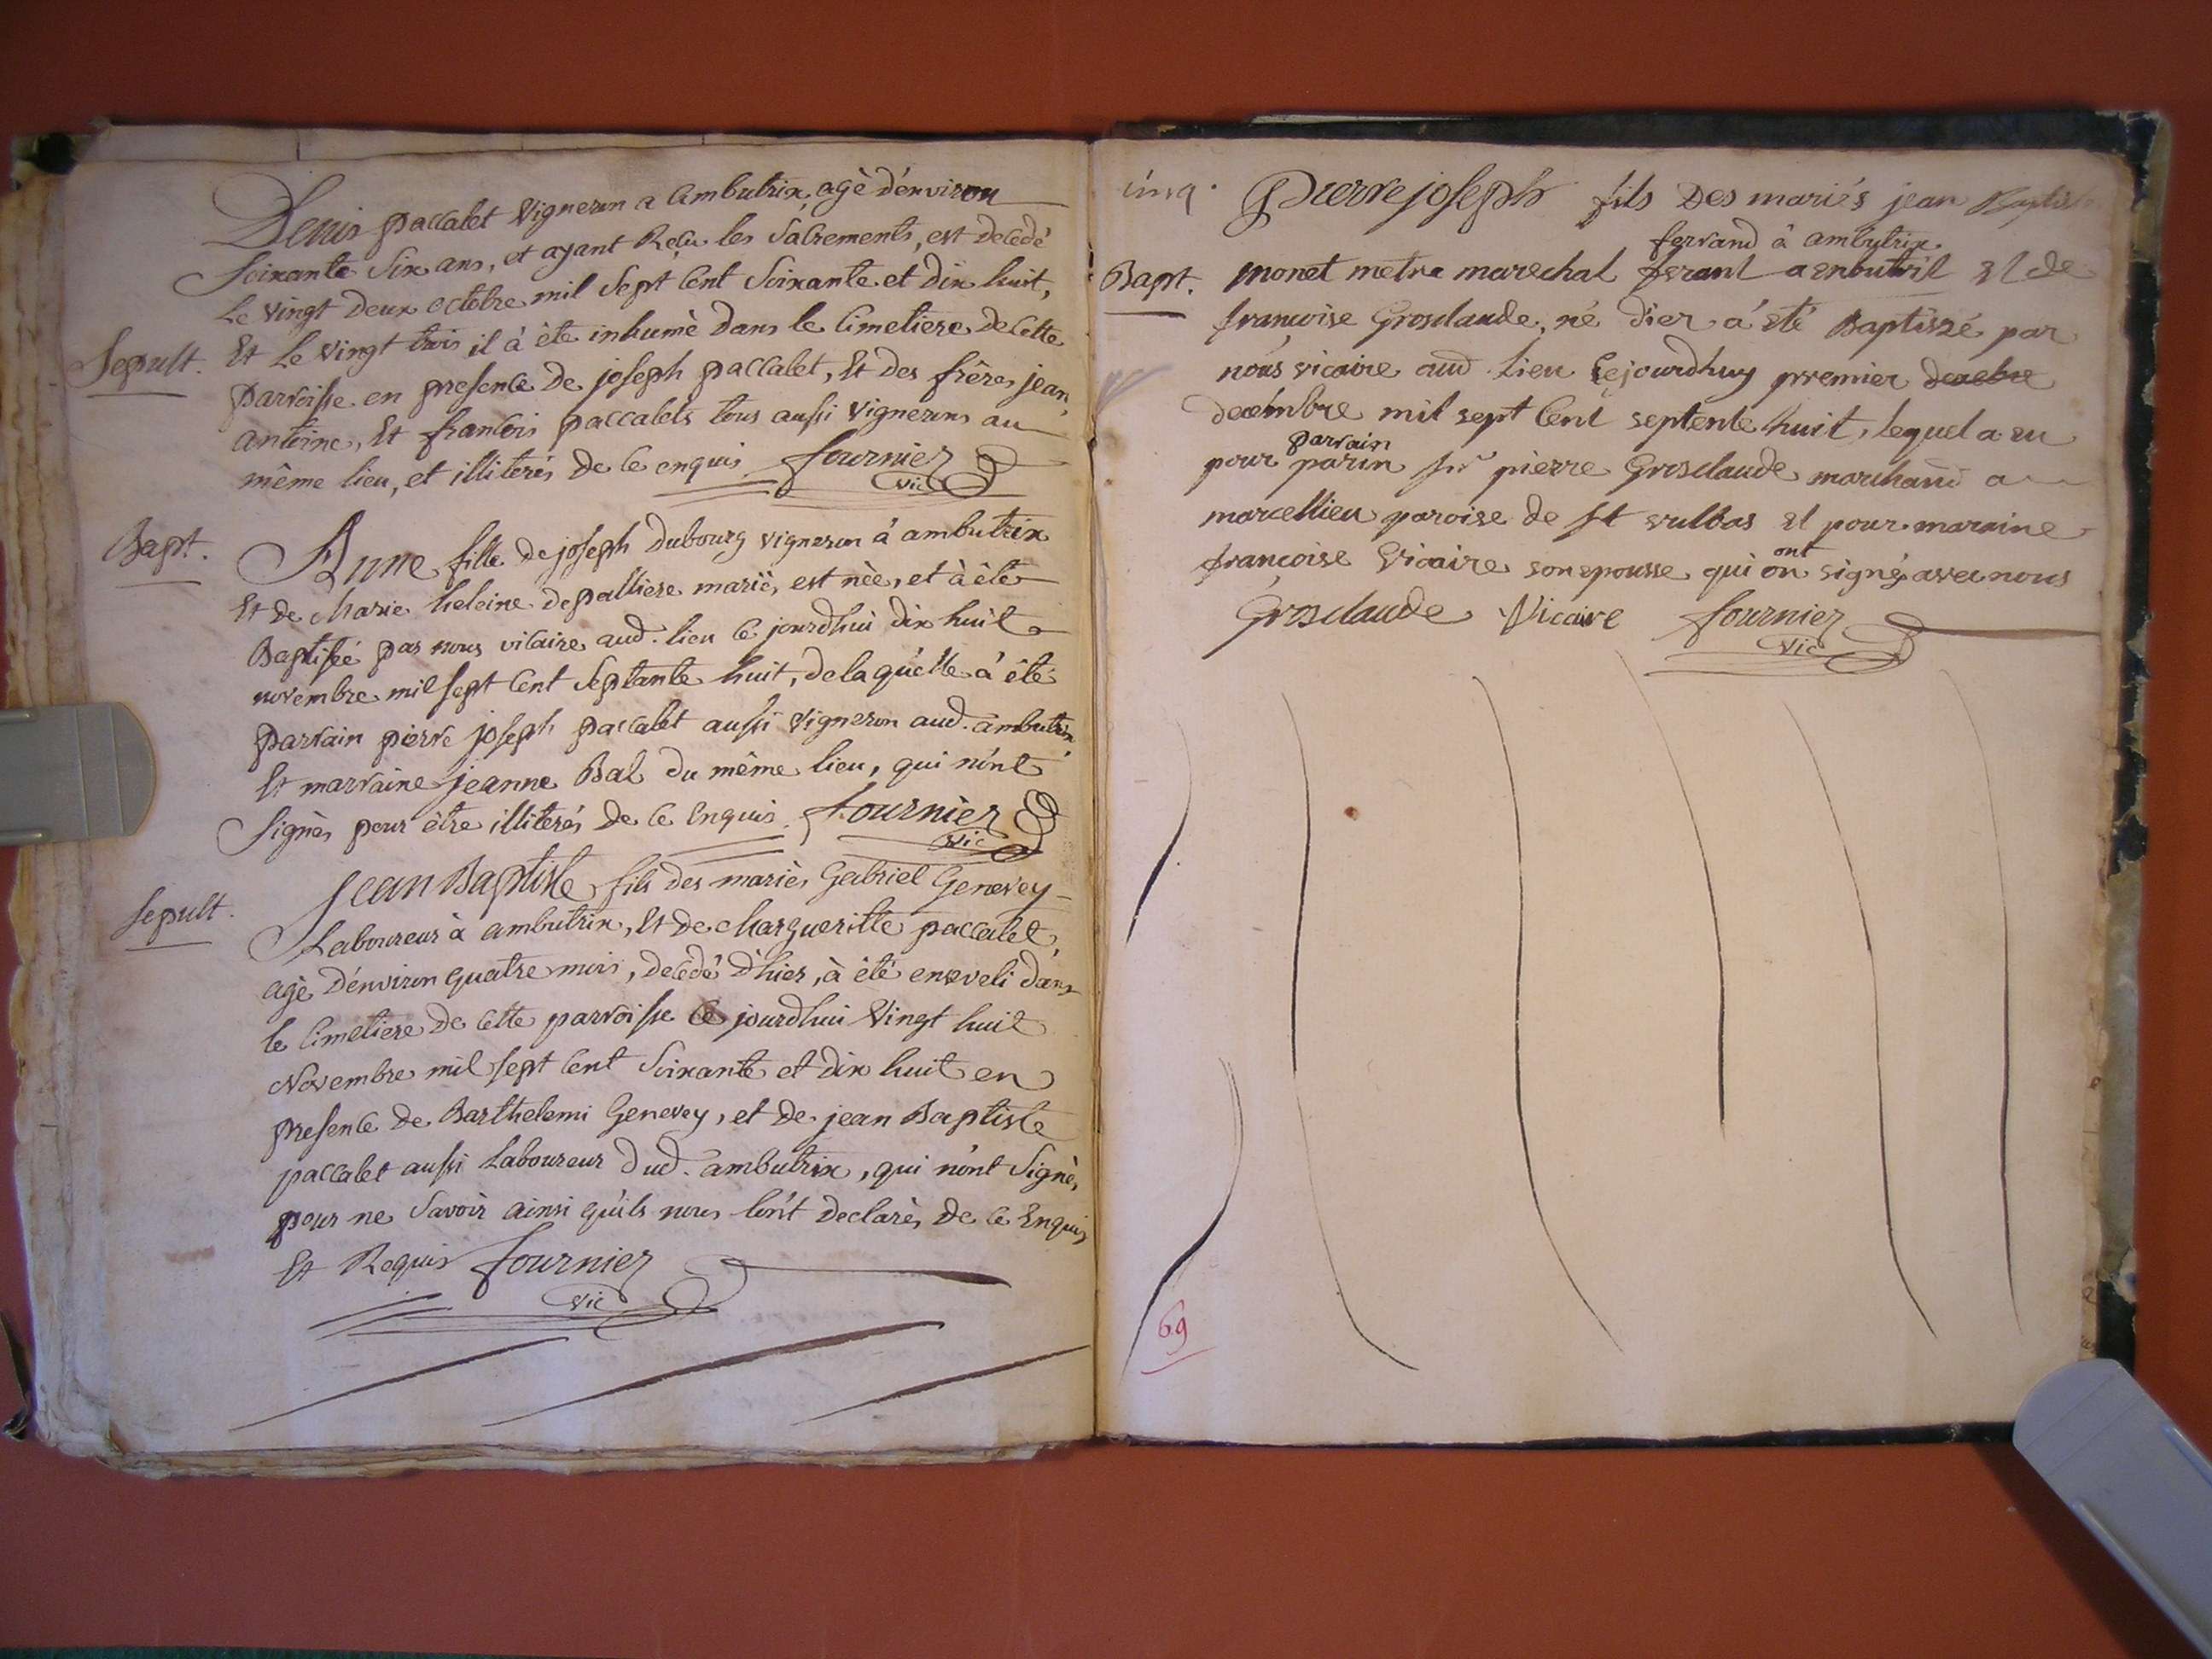 Denis paccalet Vigneron a ambutrix, agè d'environ
soixante six ans, et ayant Reçu les Sacrements, est decedé
le vingt deux octobre mil sept cent soixante et dix huit,
Sepult. Et le vingt trois il à ète inhumè dans le Cimetiere de cette
parroisse en presence de joseph paccalet, Et des frères jean,
antoine, Et francois paccalets tous aussi vignerons au
même lieu, et illiterés de ce enquis fournier
vic
Bapt. Anne fille de joseph dubourg vigneron à ambutrix
Et de Marie heleine depalliere mariès, est nèe, et à ète
Baptisèe par nous vicaire aud. lieu ce jourdhui dix huit
novembre mil sept cent septante huit, de laquelle à ète
parrain pierre joseph paccalet aussi vigneron aud. ambutrix,
Et marraine jeanne Bal du même lieu, qui n'ont
signès pour être illiterés de ce Enquis. fournier
vic
sepult. Jean Baptiste fils des mariès Gabriel Genevey
Laboureur à ambutrix, Et de Margueritte paccalet,
agè d'environ quatre mois, decedé d'hier, à èté enseveli dans
le Cimetiere de cette parroisse ce jourdhui vingt huit
Novembre mil sept cent soixante et dix huit en
presence de Barthelemi Genevey, et de jean Baptiste
paccalet aussi Laboureur dud. ambutrix, qui n'ont signè,
pour ne savoir ainsi qu'ils nous l'ont declarès de ce Enquis
Et Requis fournier
vic
cinq. Pierre joseph fils des mariés jean Baptiste
ferrand à ambutrix
Bapt. monet metre marechal ferant a enbutril et de
françoise Grosclaude, né d'ier a été Baptizé par
nous vicaire aud. lieu cejourdhuy premier decebre
decembre mil sept cent septente huit, lequel a eu
parrain
pour parin sr pierre Grosclaude marchand a
marcellieu paroise de st vulbas et pour maraine
ont
françoise Vicaire son epousse qui on signé avec nous
Grosclaude Vicaire fournier
vic
69